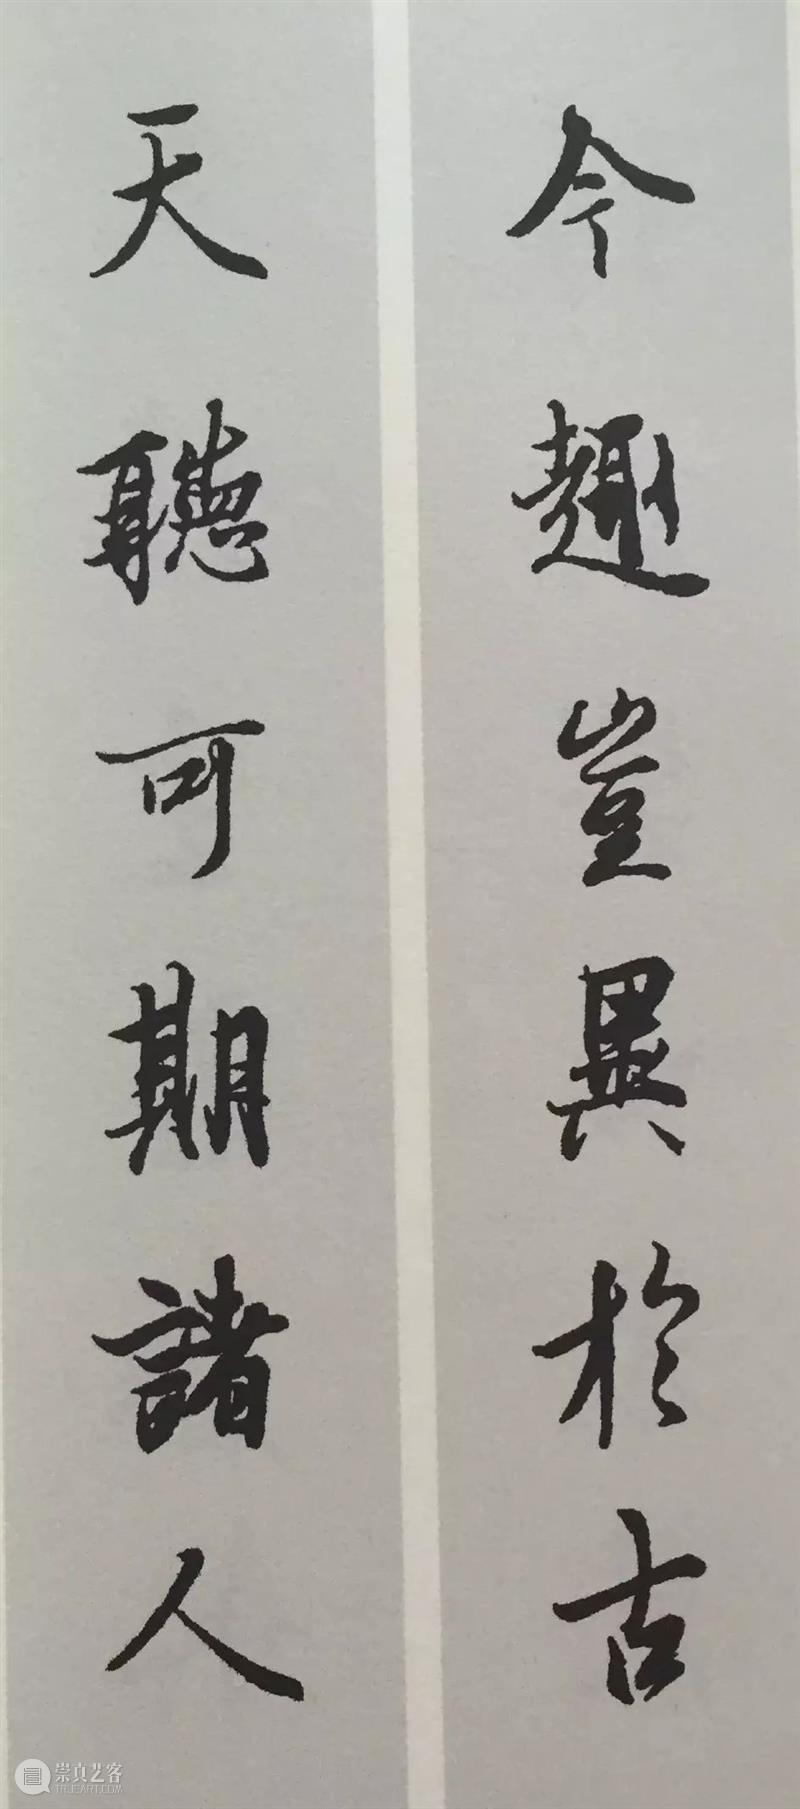 今趣豈異於古
天聽可期諸人
崇真艺客
TRUEART.COM